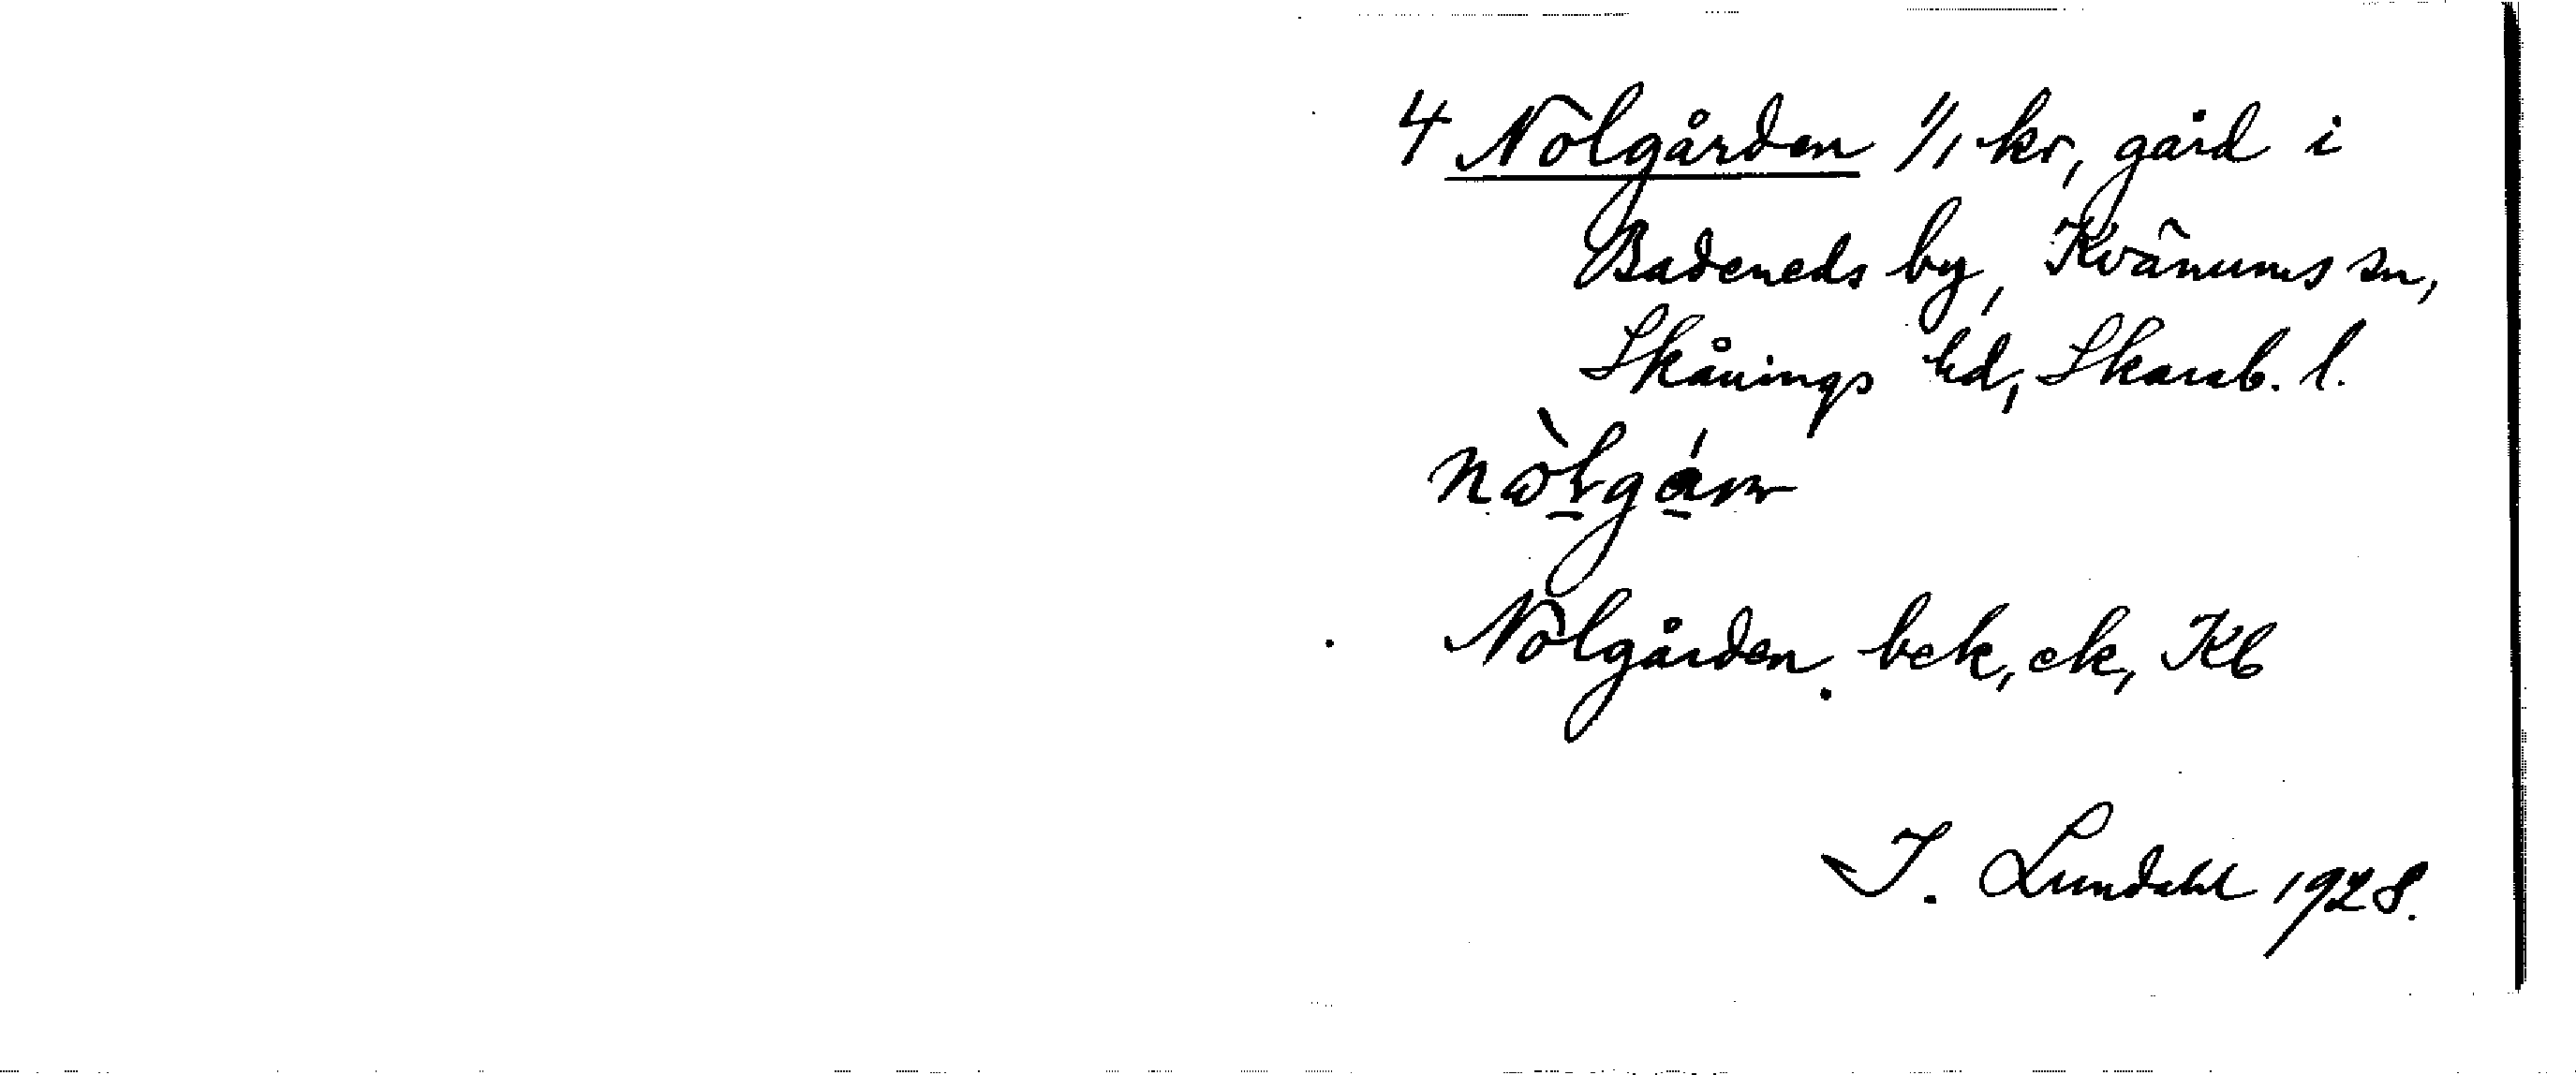 4 Nolgården 1/1 kr, gård i
Badeneds by, Kvänums sn,
Skånings hd, Skarab. l.
Nolgården. bek, ek, Kb
I. Lundahl 1928.